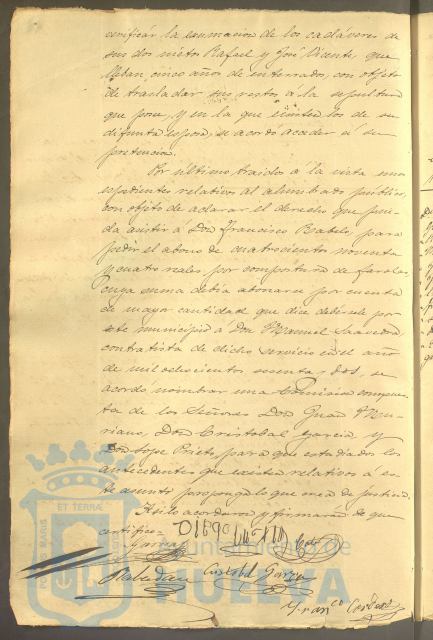 verificar la exhumación de los cadáveres de
sus dos nietos Rafael y José Vicente, que
llevan cinco años de enterrados, con objeto
de trasladar sus restos á la sepultura
que posee, y en la que existen los de su
difunta esposa, se acordó acceder á su
pretencion.
Por último traidos á la vista unos
espedientes relativos al alumbrado público,
con objeto de aclarar el derecho que pue-
da asistir á Don Francisco Rabelo, para
pedir el abono de cuatrocientos noventa
y cuatro reales, por compostura de farolas,
cuya suma debía abonarse por cuenta
de mayor cantidad que dice debérsele por
este municipio á Don Manuel Saavedra
contratista de dicho servicio en el año
de mil ochocientos sesenta y dos, se
acordó nombrar una Comision compues-
ta de los Señores Don Juan
Don Cristobal Garcia y
Don Jose Prieto, para que estudiados los
antecedentes que existen relativos á es-
te asunto, proponga lo que crea de justicia.
Asi lo acordaron y firmarán de que
certifico.
Garcia
Cristobal Garcia
Franco
ET TERRÆ
Ayuntamiento de
HUELVA